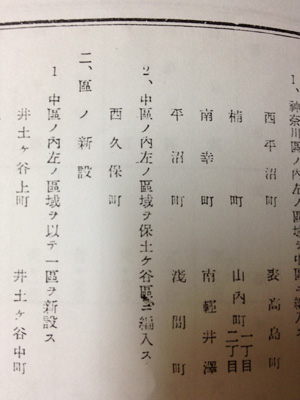 1、神奈川區ノ內左ノ區域ヲ中區ニ編入ス
西平沼町 表高島町
楠町 山內町一丁目二丁目
南幸町 南輕井澤
平沼町 淺間町
2、中區ノ內左ノ區域ヲ保土ケ谷區ニ編入ス
西久保町
二、區ノ新設
1 中區ノ內左ノ區域ヲ以テ一區ヲ新設ス
井土ケ谷上町 井土ケ谷中町